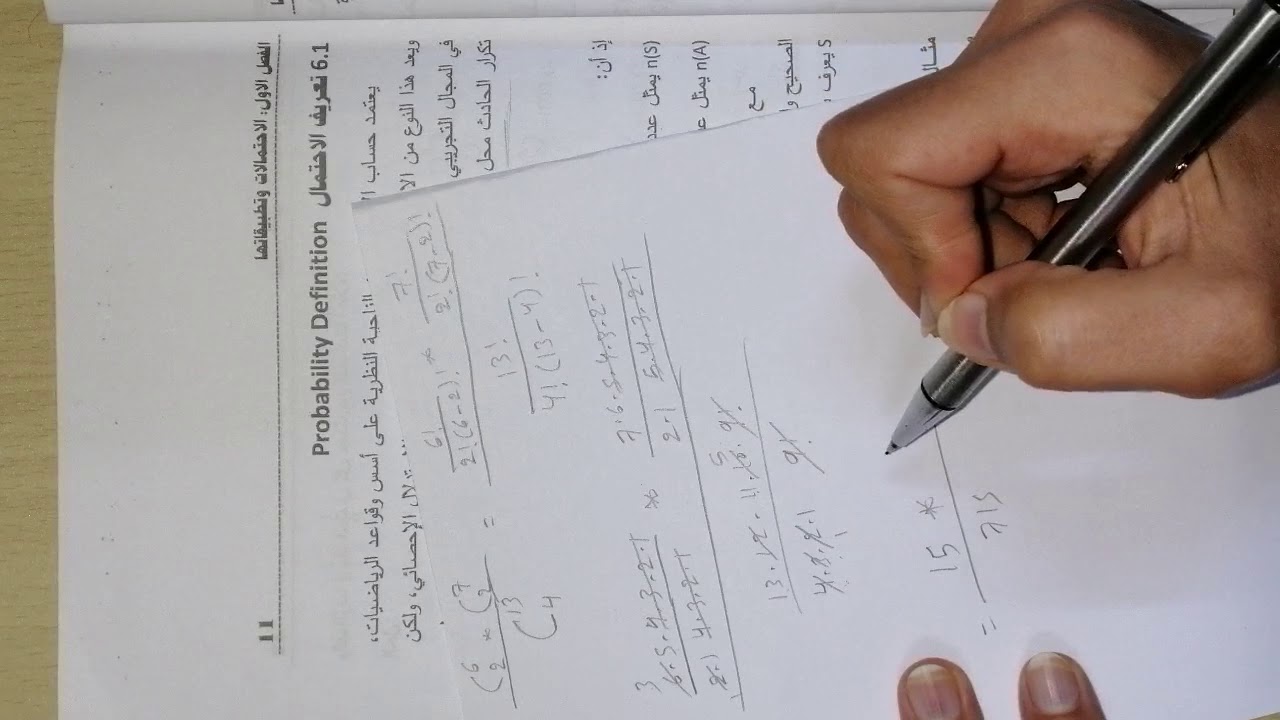 11 الفصل الاول: الاحتمالات وتطبيقاتها
6.1 تعريف الاحتمال Probability Definition
يعتمد حساب الناحية النظرية على أسس وقواعد الرياضيات،
ويعد هذا النوع من الإحصائي، ولكن
في المجال التجريبي
تكرار الحادث محل
إذ أن:
n(S) يمثل عدد
n(A) يمثل
مع
الصحيح
S يعرف
مثال
(C_2^6 * C_2^7) / C_4^13 = (6! / 2!(6-2)! * 7! / 2!(7-2)!) / (13! / 4!(13-4)!)
3
(6.5.4.3.2.1 / 2.1 4.3.2.1 * 7.6.5.4.3.2.1 / 2.1 5.4.3.2.1)
5
(13.12.11.10.9! / 4.3.2.1 9!)
= 15 * / 715